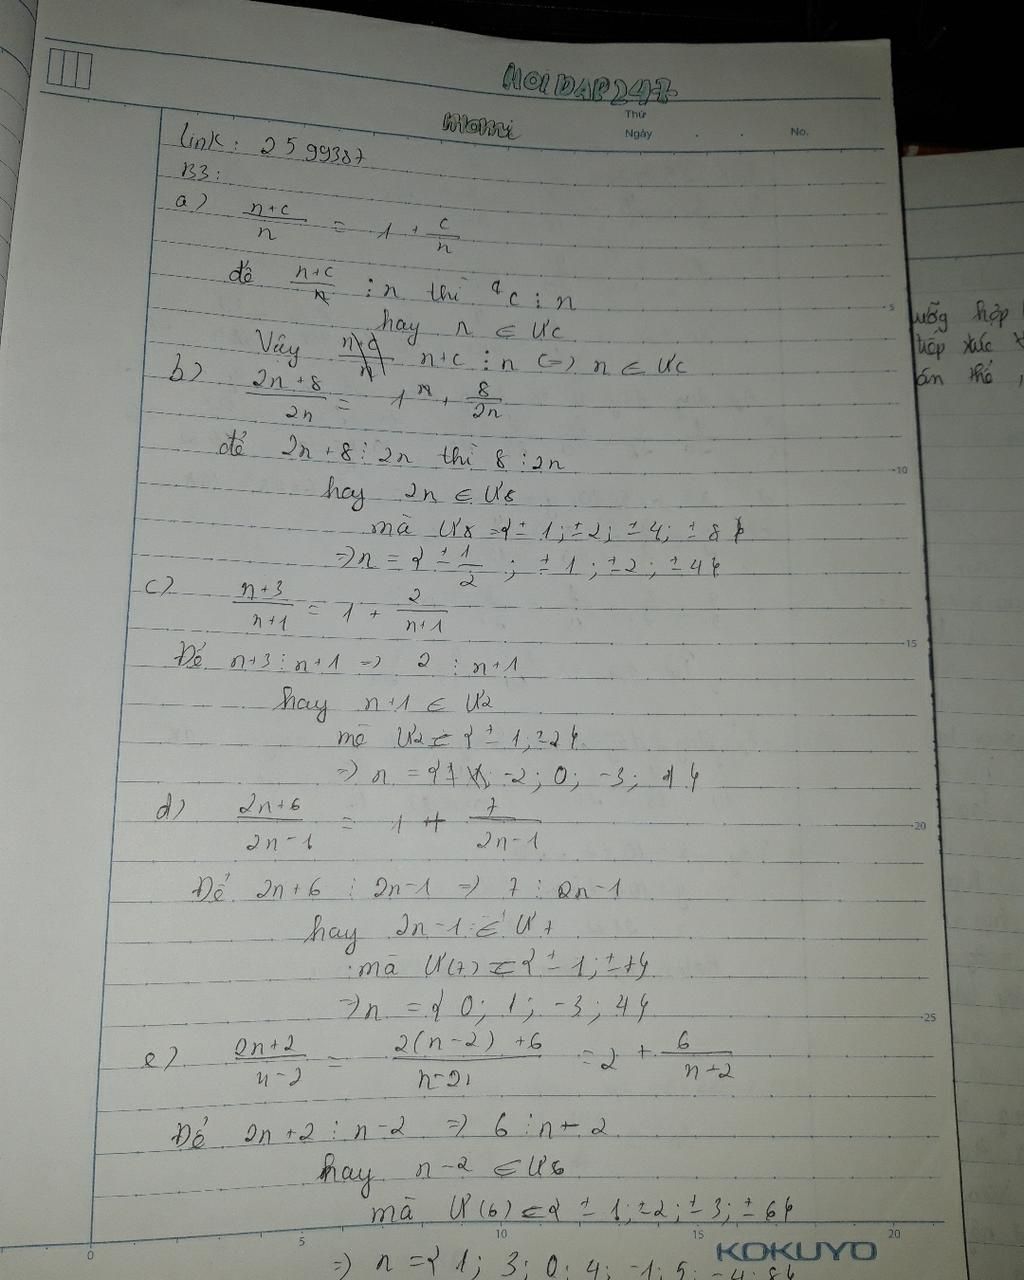 HOIDAP247
Thứ
momi
Ngày . . No.
link: 2599387
B3:
a) n+c/n = 1 + c/n
để n+c/n ⋮ n thì c ⋮ n
hay n ∈ Ưc
Vậy n+c ⋮ n (=) n ∈ Ưc
b) 2n+8/2n = 1 + 8/2n
để 2n+8 ⋮ 2n thì 8 ⋮ 2n
hay 2n ∈ Ư8
mà Ư8 = {±1; ±2; ±4; ±8}
=> n = {±1/2; ±1; ±2; ±4}
c) n+3/n+1 = 1 + 2/n+1
Để n+3 ⋮ n+1 => 2 ⋮ n+1
hay n+1 ∈ Ư2
mà Ư2 = {±1; ±2}
=> n = { -2; 0; -3; 1}
d) 2n+6/2n-1 = 1 + 7/2n-1
Để 2n+6 ⋮ 2n-1 => 7 ⋮ 2n-1
hay 2n-1 ∈ Ư7
mà Ư(7) ∈ {±1; ±7}
=> n = {0; 1; -3; 4}
e) 2n+2/n-2 = 2(n-2)+6/n-2 = 2 + 6/n-2
Để 2n+2 ⋮ n-2 => 6 ⋮ n-2
hay n-2 ∈ Ư6
mà Ư(6) ∈ {±1; ±2; ±3; ±6}
=> n = {1; 3; 0; 4; -1; 5; -4; 8}
5
10
15
20
25
0 5 10 15 20
KOKUYO
hợp
tiếp xúc